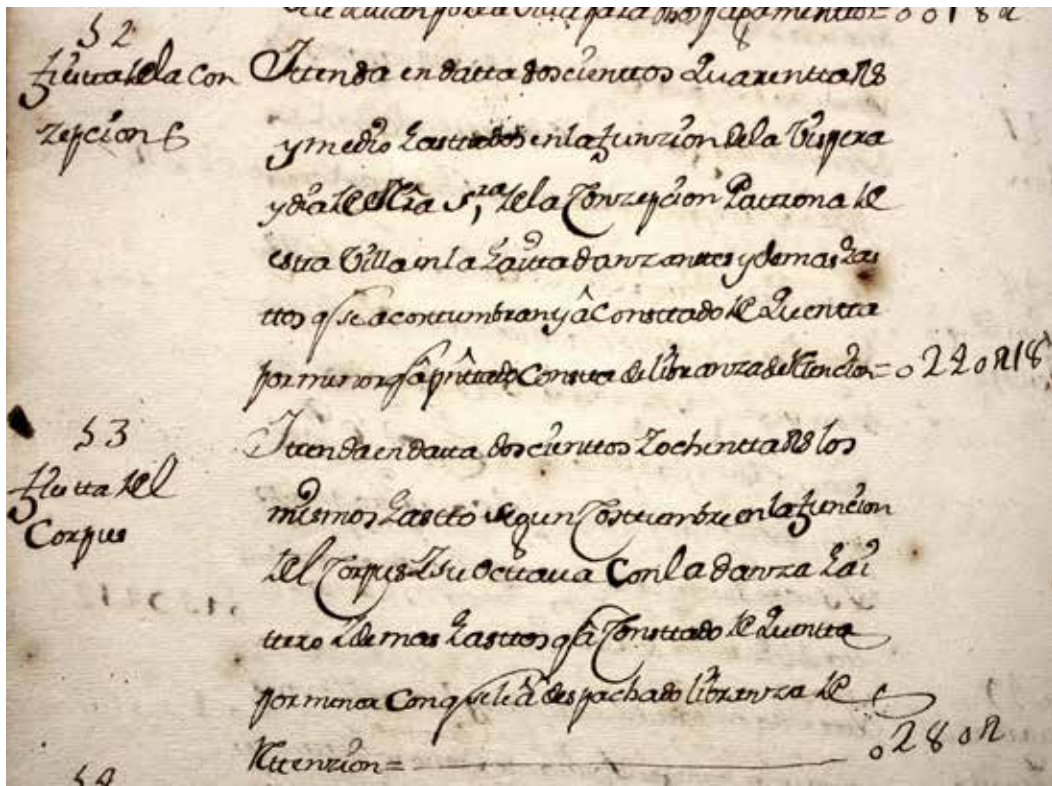 52
fiestta de la Con
zepcion
Itten da en datta doscienttos quarentta Rs
y medio gasttados en la funzion de la Vispera
y dia de Nra Sra de la Conzepcion Pattrona de
estta Villa en la gaitta danzanttes y demas gas
ttos q se acostumbran y â Consttado de quentta
por menor q â presentado Con su libranza de Rttencion = 0 2 2 0 R 18
53
fiestta del
Corpus
Itten da en datta doscienttos Y ochentta Rs los
mismos gastto segun Costtumbre en la funcion
del Corpus Y su Octtava Con la danza gai
ttero Y demas gasttos q â Consttado de quentta
por menor Con q se le â despachado libranza de
Rttenzion = 0 2 8 0 R
54